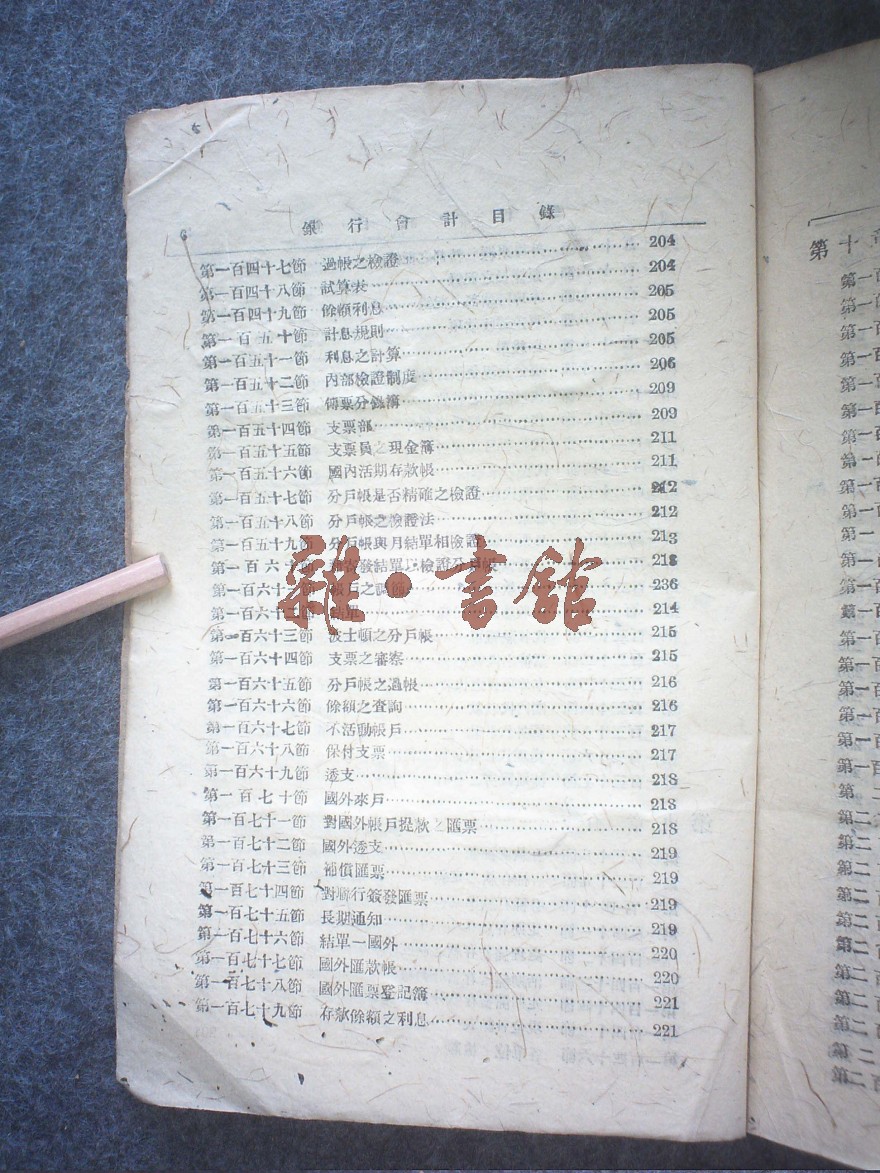 6 銀行會計目錄
第一百四十七節 過帳之檢證 204
第一百四十八節 試算表 204
第一百四十九節 餘額利息 205
第一百五十節 計息規則 205
第一百五十一節 利息之計算 205
第一百五十二節 內部檢證制度 206
第一百五十三節 傳票分錄簿 209
第一百五十四節 支票部 209
第一百五十五節 支票員之現金簿 211
第一百五十六節 國內活期存款帳 211
第一百五十七節 分戶帳是否精確之檢證 212
第一百五十八節 分戶帳之檢證法 212
第一百五十九節 分戶帳與月結單相檢證 213
第一百六十節 發結單 檢證分戶帳 213
第一百六十一節 帳戶之 236
第一百六十二節 214
第一百六十三節 波士頓之分戶帳 215
第一百六十四節 支票之審察 215
第一百六十五節 分戶帳之過帳 216
第一百六十六節 餘額之查詢 216
第一百六十七節 不活動帳戶 217
第一百六十八節 保付支票 217
第一百六十九節 透支 218
第一百七十節 國外來戶 218
第一百七十一節 對國外帳戶提款之匯票 218
第一百七十二節 國外透支 219
第一百七十三節 補償匯票 219
第一百七十四節 對聯行簽發匯票 219
第一百七十五節 長期通知 219
第一百七十六節 結單—國外 220
第一百七十七節 國外匯款帳 220
第一百七十八節 國外匯票登記簿 221
第一百七十九節 存款餘額之利息 221
雜·書館
第十章